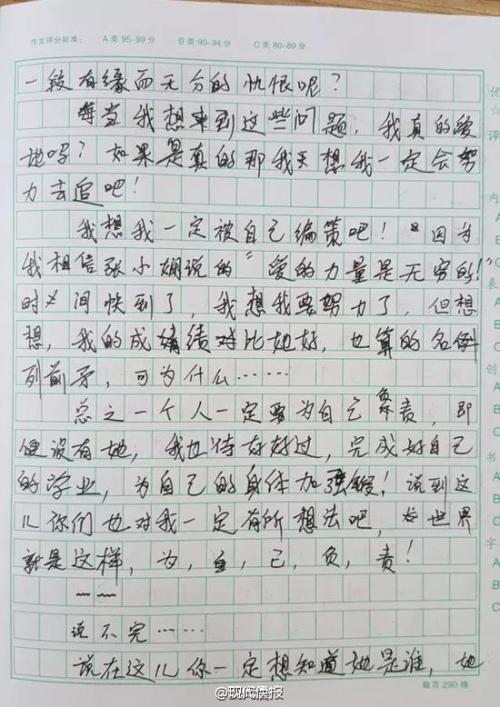 作文评分标准： A类 95-99分 B类 90-94分 C类 80-89分
一段有缘而无分的仇恨呢？
每当我想来到这些问题，我真的爱
她吗？如果是真的那我天想我一定会努
力去追吧！
我想我一定被自己鞭策吧！“因为
我相信张小娴说的“爱的力量是无穷的！
时间快到了，我想我要努力了，但想
想，我的成绩对比她好，也算的名例
列前矛，可为什么……
总之一个人一定要为自己负责，即
便没有她，我也待好好过，完成好自己
的学业，为自己的身体加强锻！说到这
儿你们也对我一定有所想法吧，世界
就是这样，为，自，己，负，责！
~~
说不完……
说在这儿你一定想知道她是谁，她
每页290格
@现代快报
优
☆
评
内
A
B
C
表
A
B
C
创
A
B
C
书
A
B
C
字
A
B
C